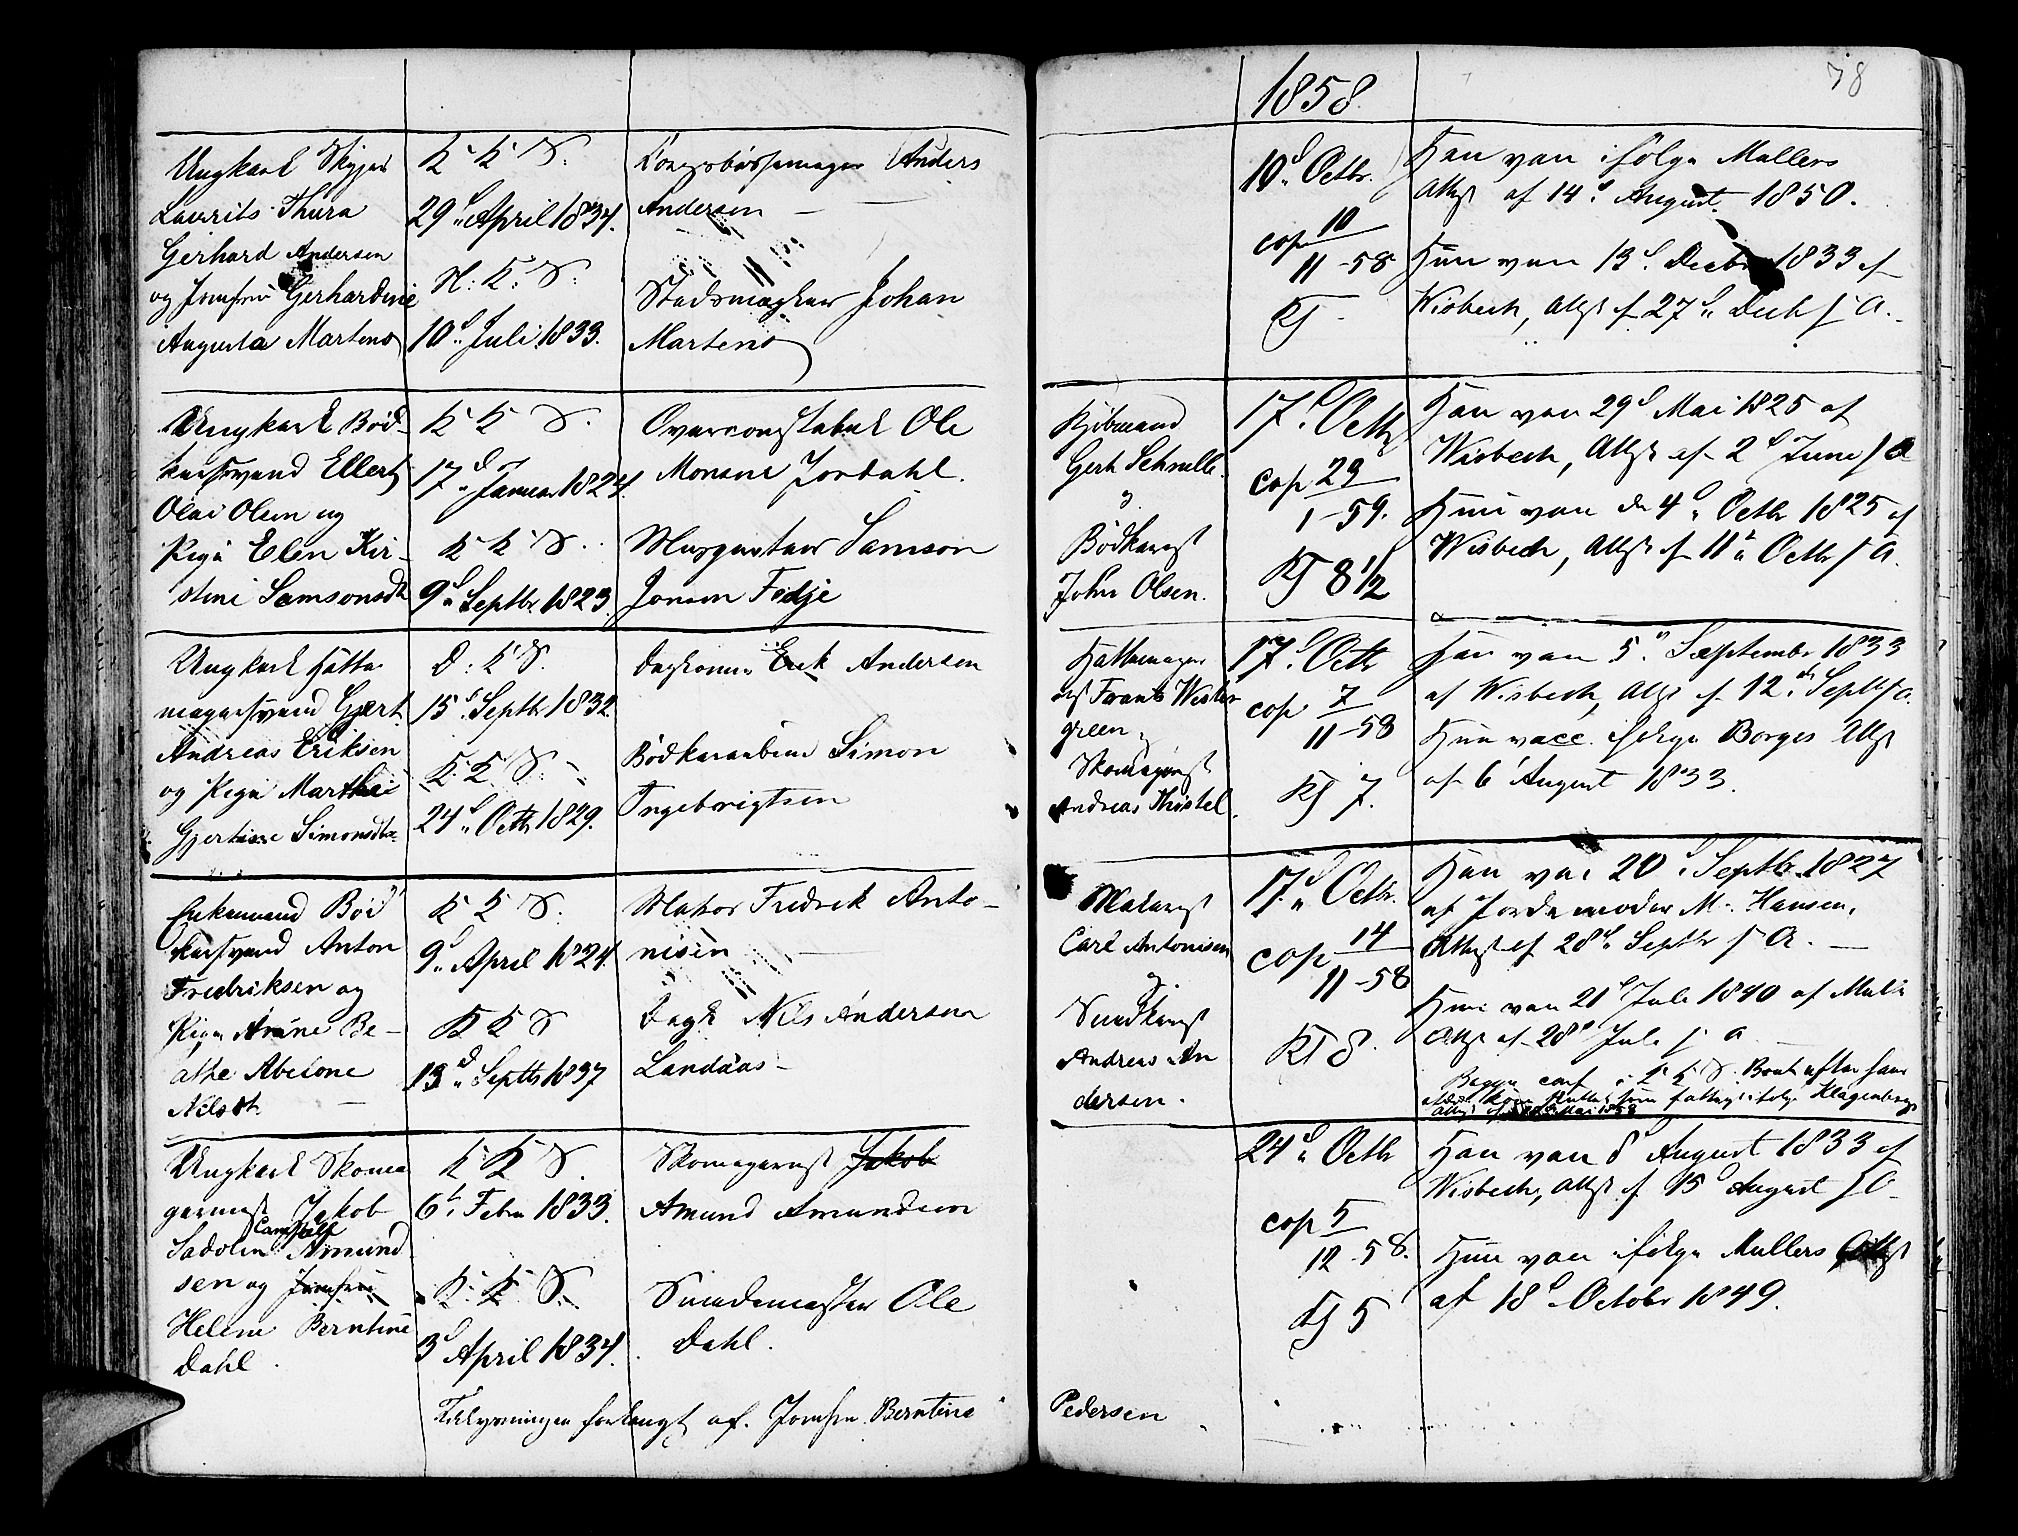 1858
78
Ungkarl
Laurits Thura
Gerhard Andersen
og Jomfru Gerhardine
Augusta Martens
K K S.
29d April 1834.
N: K: S:
10d Juli 1833.
Anders
Andersen
Johan
Martens
10d Octbr.
cop 10
11-58
Kj
Han vac ifölge Mullers
Attst af 14d August 1850.
Hun vac 13d Decbr 1833 af
Wisbech, Attst af 27d Decb s. A.
Ungkarl Bød-
kersvend Ellert
Olai Olsen og
Pige Elen Kir-
stine Samsonsdt
K K S.
17d Januar 1824.
K K S.
9d Septbr 1823.
Overconstabel Ole
Monsen Jordahl.
Murmester Samson
Jonsen Fedje
Kjøbmand
Gerh Schnelle
Bødkermst
John Olsen.
17d Octbr
cop 29
1-59.
Kj 8 1/2
Han vac 29d Mai 1825 af
Wisbech, Attst af 2d Juni s. A
Hun vac de 4d Octbr 1825 af
Wisbech, Attst af 11d Octbr s. A.
Ungkarl Hatte
magersvend Gjert
Andreas Eriksen
og Pige Marthe
Gjertine Simonsdtr
D: K S.
15d Septbr 1832
K. K S.
24d Octbr 1829.
Erik Andersen
Bødkerarbeider Simon
Ingebrigtsen
Hattemager
mst Frants Wester
green
Skomagermst
Andreas Thistel.
17d Octbr
cop 7
11-58
Kj 7.
Han vac 5d September 1833
af Wisbech, Attst af 12d Septbr s. A.
Hun vacc. ifölge Borges Attst
af 6 August 1833.
Enkemand Bød
kersvend Anton
Fredriksen og
Pige Be-
athe Abelone
Nilsdt.
K K S.
9d April 1824.
K K S
13d Septbr 1837
Fredrik Anto-
nisen
Dagk Nils Andersen
Landaas
Malermst
Carl Antonisen
Andreas An
dersen.
17d Octbr.
cop 14
11-58
Kj 8.
Han vac 20d Septbr 1827
af Jordemoder M. Hansen,
Attst af 28d Septbr s. A.
Hun vac 21d Juli 1840 af
Attst af 28d Juli s. A
Ungkarl Skoma
germst Jakob
Sadolin Amund
sen og Jomfru
Helene Berntine
Dahl.
K K S.
6d Febr 1833.
K. K. S.
3d April 1834.
Skomagermst Jakob
Amund Amundsen
Ole
Dahl.
24d Octbr
cop 5
12-58.
Kj 5
Han vac 8d August 1833 af
Wisbech, Attst af 15d August s. A
Hun vac ifölge Mullers Attst
af 18d October 1849.
Tillysningen forlangt af Jomfru Berntine
Pedersen